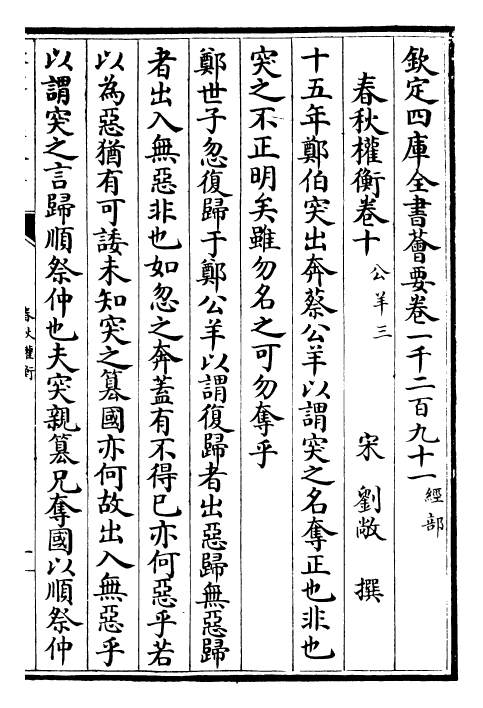 欽定四庫全書薈要卷一千二百九十一 經部
春秋權衡卷十 公羊三
宋 劉敞 撰
十五年鄭伯突出奔蔡公羊以謂突之名奪正也非也
突之不正明矣雖勿名之可勿奪乎
鄭世子忽復歸于鄭公羊以謂復歸者出惡歸無惡歸
者出入無惡非也如忽之奔蓋有不得已亦何惡乎若
以為惡猶有可諉未知突之簒國亦何故出入無惡乎
以謂突之言歸順祭仲也夫突親簒兄奪國以順祭仲
春秋權衡